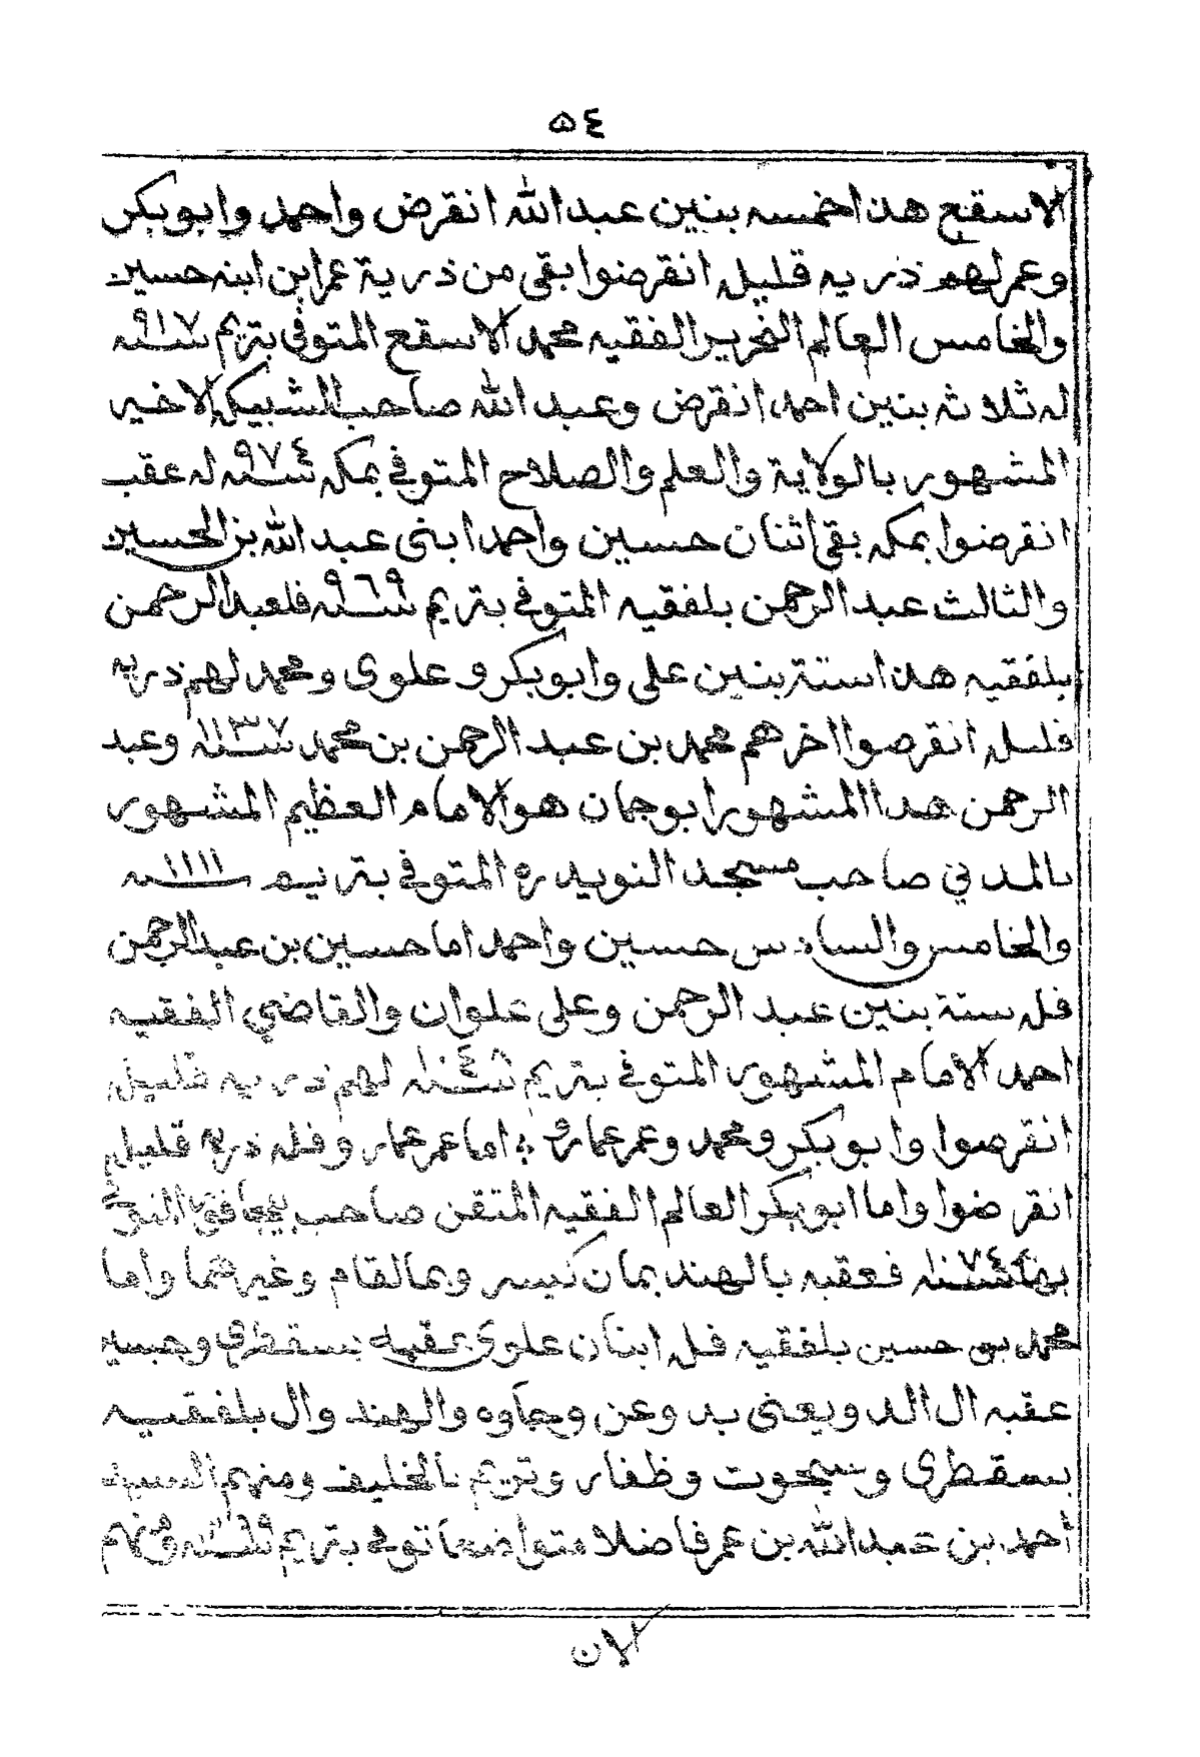 ٥٤
الاسقع هذا خمسه بنين عبد الله انقرض واحمد وابو بكر
وعمر لهم ذريه قليل انقرضوا بقى من ذرية عمر ابن ابنه حسين
والخامس العالم النحرير الفقيه محمد الاسقع المتوفى بتريم سنه ٩١٧
له ثلاثه بنين احمد انقرض وعبد الله صاحب الشبيكه الاخير
المشهور بالولاية والعلم والصلاح المتوفى بمكه سنه ٩٧٤ له عقب
انقرضوا بمكه بقى اثنان حسين واحمد ابنى عبد الله بن الحسين
والثالث عبد الرحمن بلفقيه المتوفى بتريم سنه ٩٦٩ فلعبد الرحمن
بلفقيه هذا ستة بنين على وابو بكر وعلوى ومحمد لهم ذريه
قليل انقرضوا اخرهم محمد بن عبد الرحمن بن محمد سنه ١١٣٧ وعبد
الرحمن هدا المشهور ابوجمان هو الامام العظيم المشهور
بالمدني صاحب مسجد النويدره المتوفى بتريم سنه ١١١١
والخامس والسادس حسين واحمد اما حسين بن عبد الرحمن
فله ستة بنين عبد الرحمن وعلى علوان والقاضي الفقيه
احمد الامام المشهور المتوفى بتريم سنه ١٠٤٨ لهم ذريه قليل
انقرضوا وابو بكر ومحمد وعمر عمار اما عمر عمار وفله ذريه قليل
انقرضوا واما ابو بكر العالم الفقيه المتقن صاحب بيجافور
بها سنه ١٠٧٤ فعقبه بالهند بمان كيسر وبمالقام وغيرهما واما
محمد بن حسين بلفقيه فله ابنان علوى عقبه بسقطرى
عقبه ال الدويعنى بدوعن وجاوه والهند وال بلفقيه
بسقطرى وسيحوت وظفار وتريم بالخليف ومنهم السيد
احمد بن عبد الله بن عمر فاضلا متواضعا توفى بتريم سنه
الان